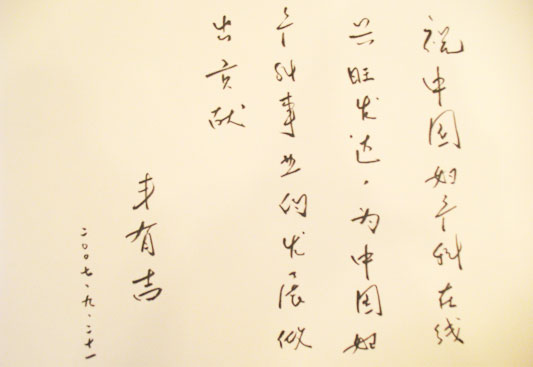 祝中国妇产科在线
兴旺发达,为中国妇
产科事业的发展做
出贡献
丰有吉
二〇〇七、九、二十一